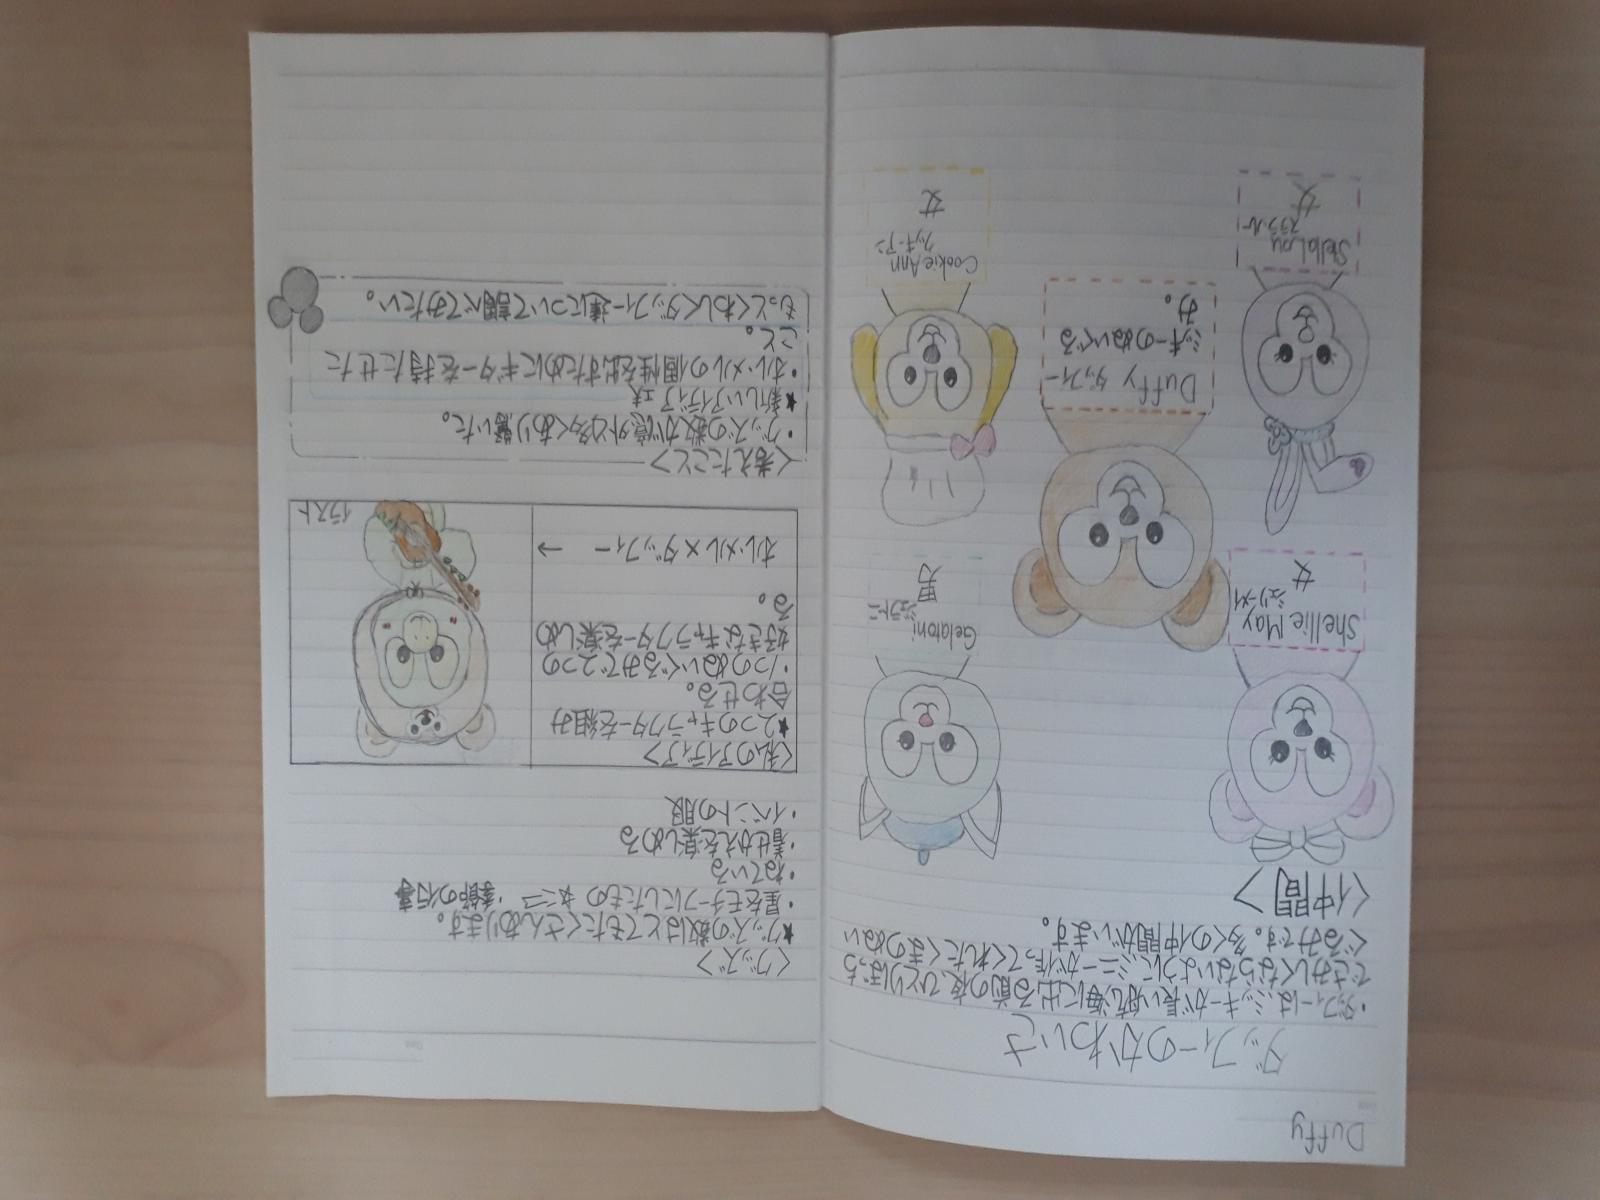 Duffy
ダッフィーのかわいさ
・ダッフィーは、ミッキーが長い航海に出る前の夜、ひとりぼっち
でさみしくならないようにミニーが作ってくれたくまのぬい
ぐるみです。多くの仲間がいます。
<仲間>
Shellie May
シェリーメイ
女
Gelatoni
ジェラトーニ
男
Duffy ダッフィー
ミッキーのぬいぐる
み。
StellaLou
ステラ・ルー
女
CookieAnn
クッキー・アン
女
<グッズ>
★グッズの数はとてもたくさんあります。
・星をモチーフにしたもの ・季節の行事
・ねている
・着せかえを楽しめる
・イベントの服
<私のアイディア>
★2つのキャラクターを組み
合わせる。
・1つのぬいぐるみで2つの
好きなキャラクターを楽しめ
る。
オル・メル×ダッフィー →
イラスト
<考えたこと>
・グッズの数が意外と多くあり驚いた。
★新しいアイディア
・オル・メルの個性を出すためにギターを持たせた
こと。
もっとくわしくダッフィー達について調べてみたい。